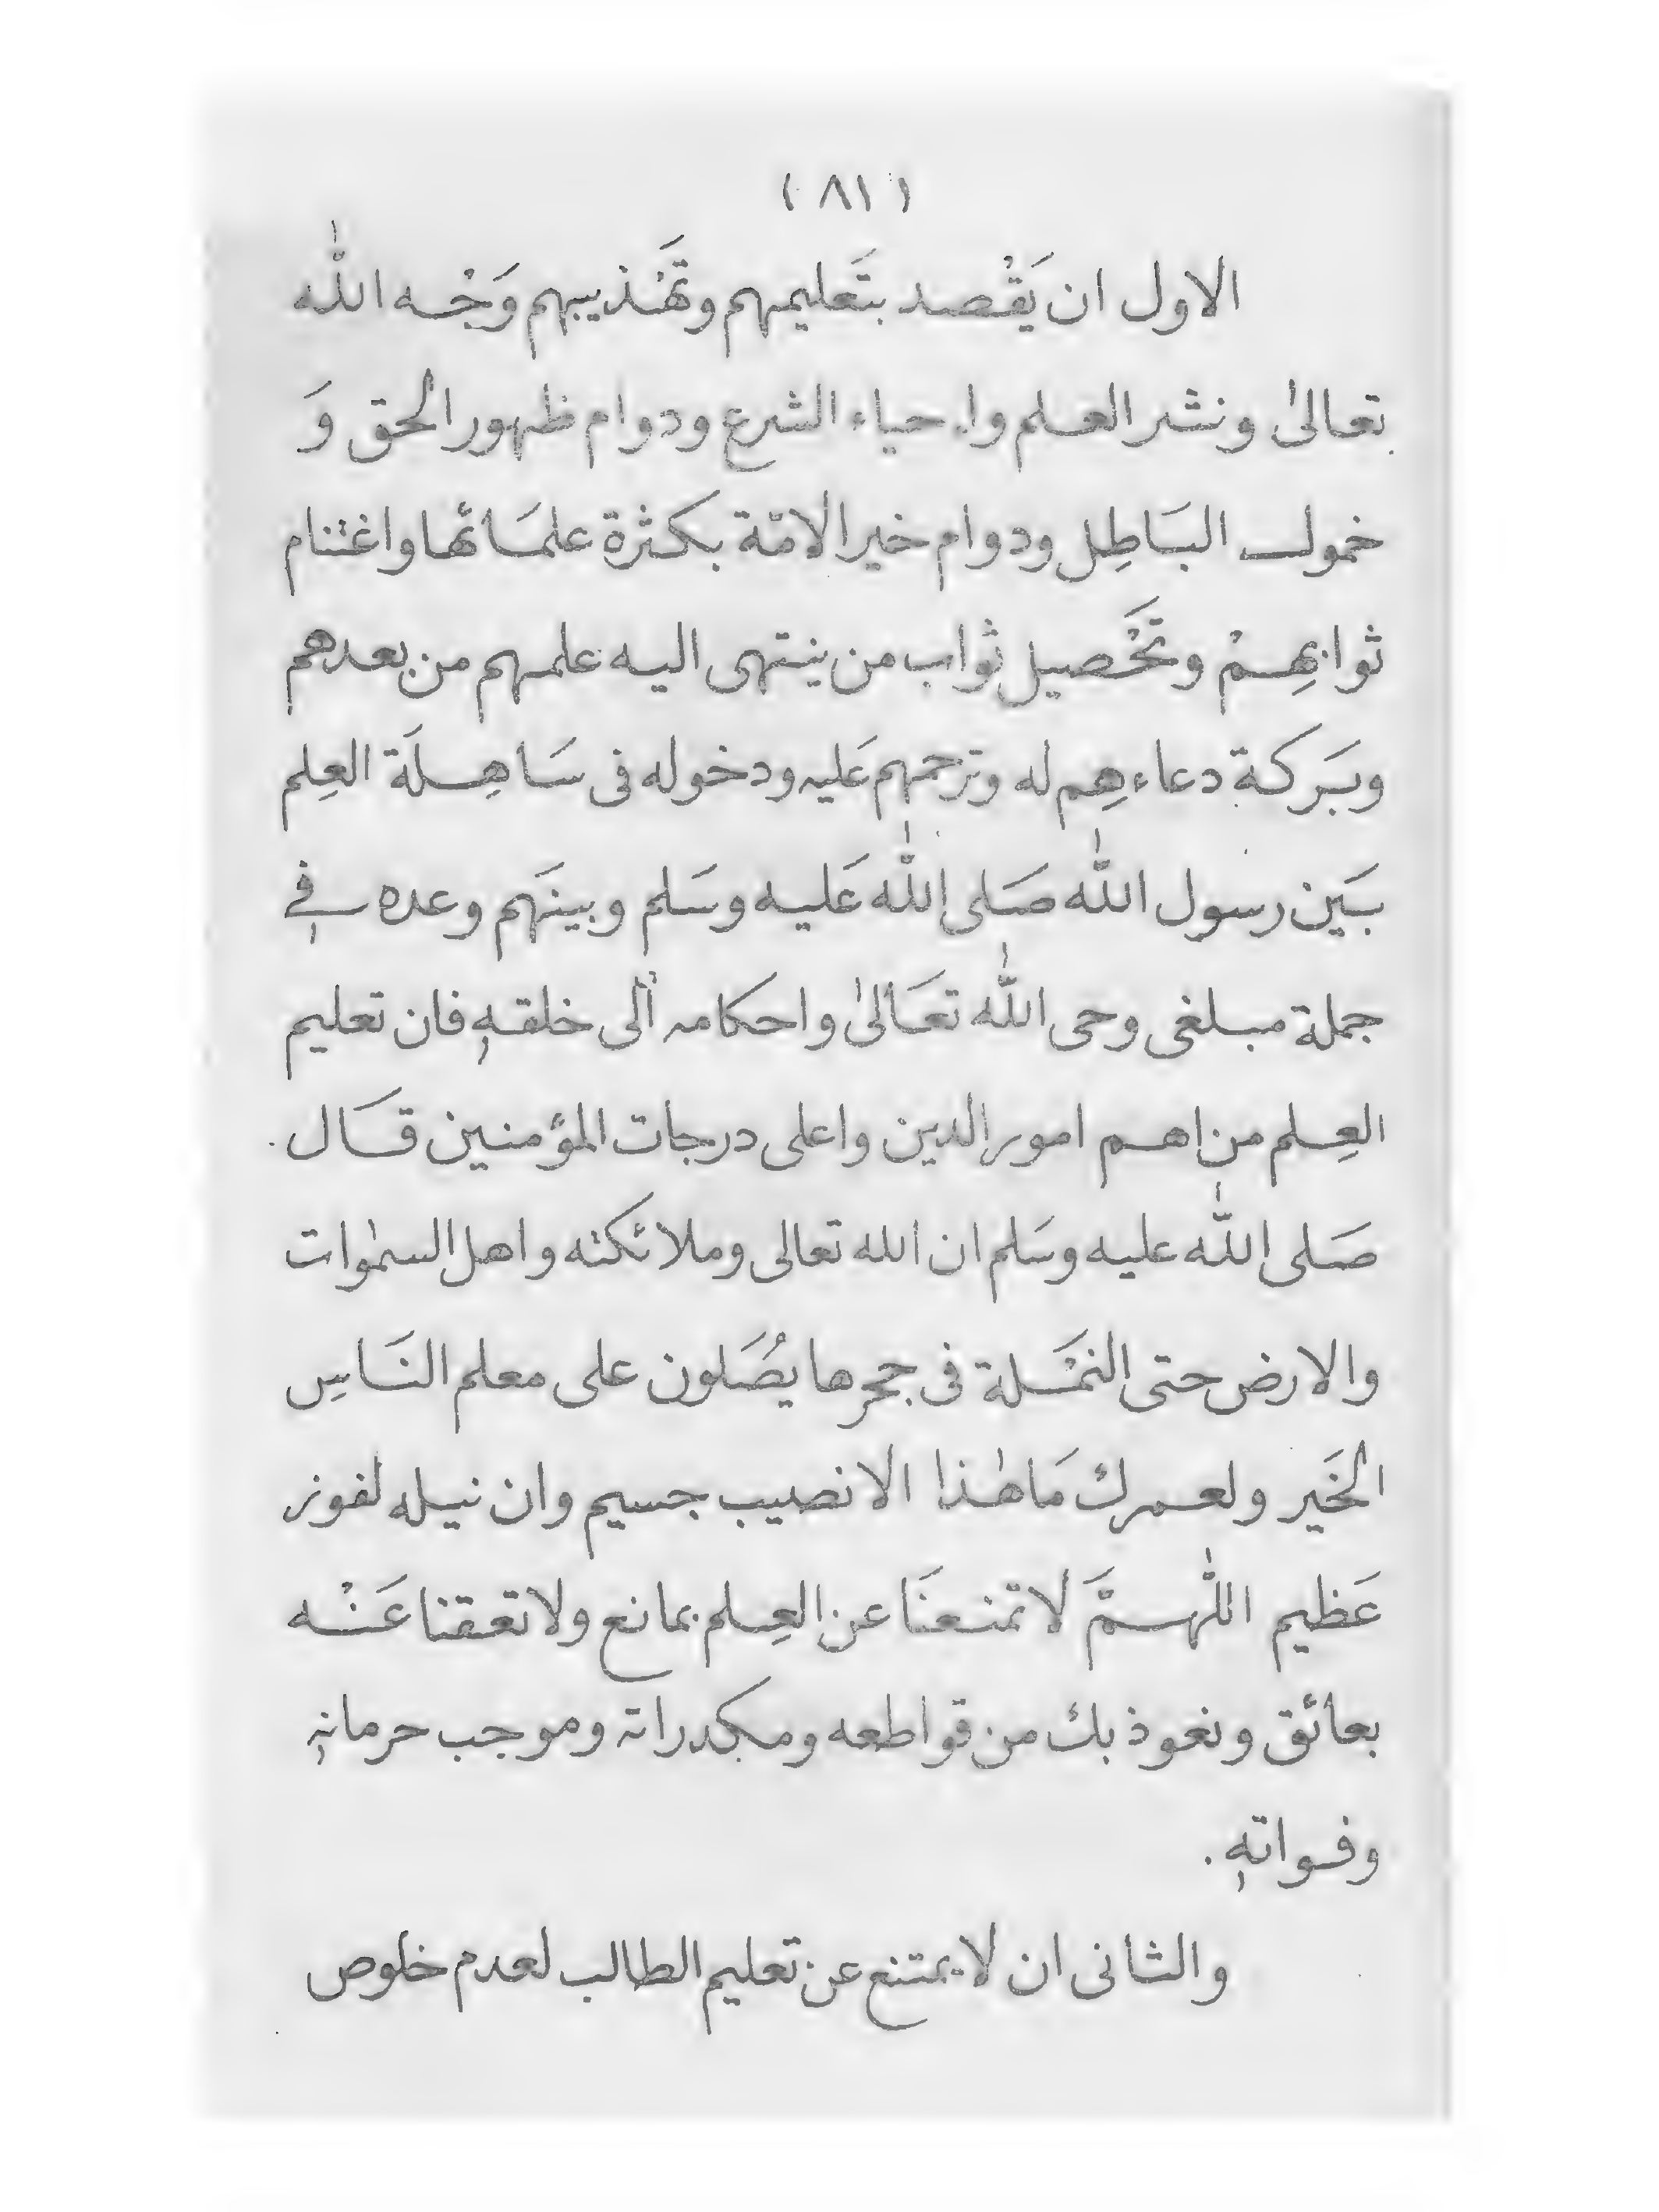 ( ٨١ )
الاول ان يَقْصد بتَعليمهم وتَهْذيبهم وَجْه اللّٰه
تعالىٰ ونشر العلم واحياء الشرع ودوام ظهور الحق وَ
خمول البَاطِل ودوام خير الامّة بكثرة علمَائها واغتنام
ثوابهِمْ وتَحْصيل ثواب من ينتهى اليه علمهم من بعدهم
وبَركة دعاءهِم له وترحمهم عَليه ودخوله فى سَاهِلَة العِلم
بَين رسول اللّٰه صَلى اللّٰه عَليه وسَلم وبينَهم وعده فى
جملة مبلغى وحى اللّٰه تعَالىٰ واحكامه ألى خلقهٖ فان تعليم
العِلم من اهم امور الدين واعلى درجات المؤمنين قَال
صَلى اللّٰه عليه وسَلم ان الله تعالى وملائكته واهل السمٰوات
والارض حتى النمْلة فى جحرها يصُلَون على معلم النَاسِ
الخَير ولعمرك مَا هٰذا الا نصيب جسيم وان نيله لفوز
عَظيم اللّٰهمَّ لا تمنعنَا عن العِلم بمانع ولا تعقنا عَنْه
بعائق ونعوذ بك من قواطعه ومكدراته وموجب حرمانهٖ
وفواتهٖ .
والثانى ان لا يمتنع عن تعليم الطالب لعدم خلوص